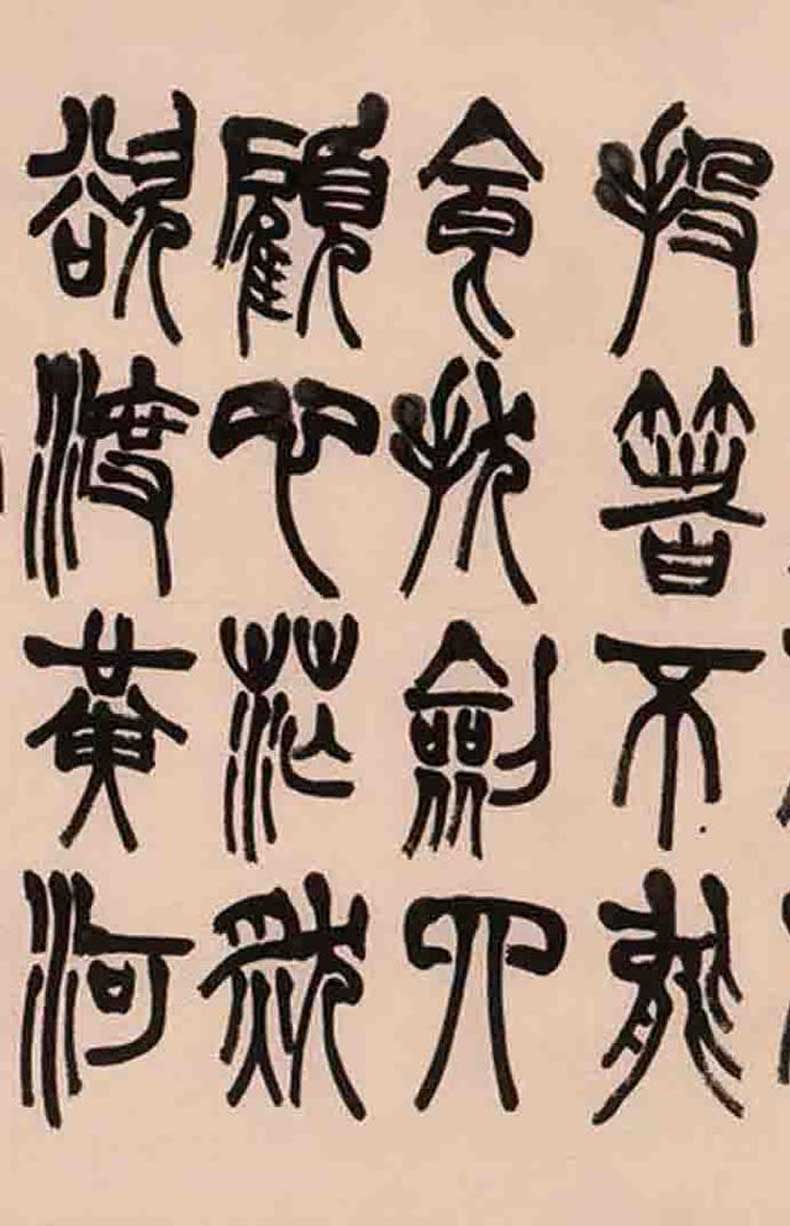 投箸不能
食拔劍四
顧心茫然
欲渡黃河